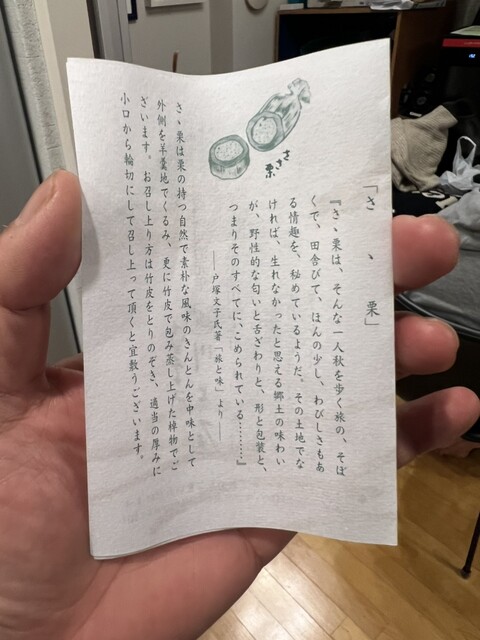 「さゝ栗」
『さゝ栗は、そんな一人秋を歩く旅の、そぼ
くで、田舎びて、ほんの少し、わびしさもあ
る情趣を、秘めているようだ。その土地でな
ければ、生れなかったと思える郷土の味わい
が、野性的な匂いと舌ざわりと、形と包装と、
つまりそのすべてに、こめられている………』
――戸塚文子氏著「旅と味」より――
さゝ栗は栗の持つ自然で素朴な風味のきんとんを中味として
外側を羊羹地でくるみ、更に竹皮で包み蒸し上げた棹物でご
ざいます。お召し上り方は竹皮をとりのぞき、適当の厚みに
小口から輪切にして召し上って頂くと宜敷うございます。
ささ栗